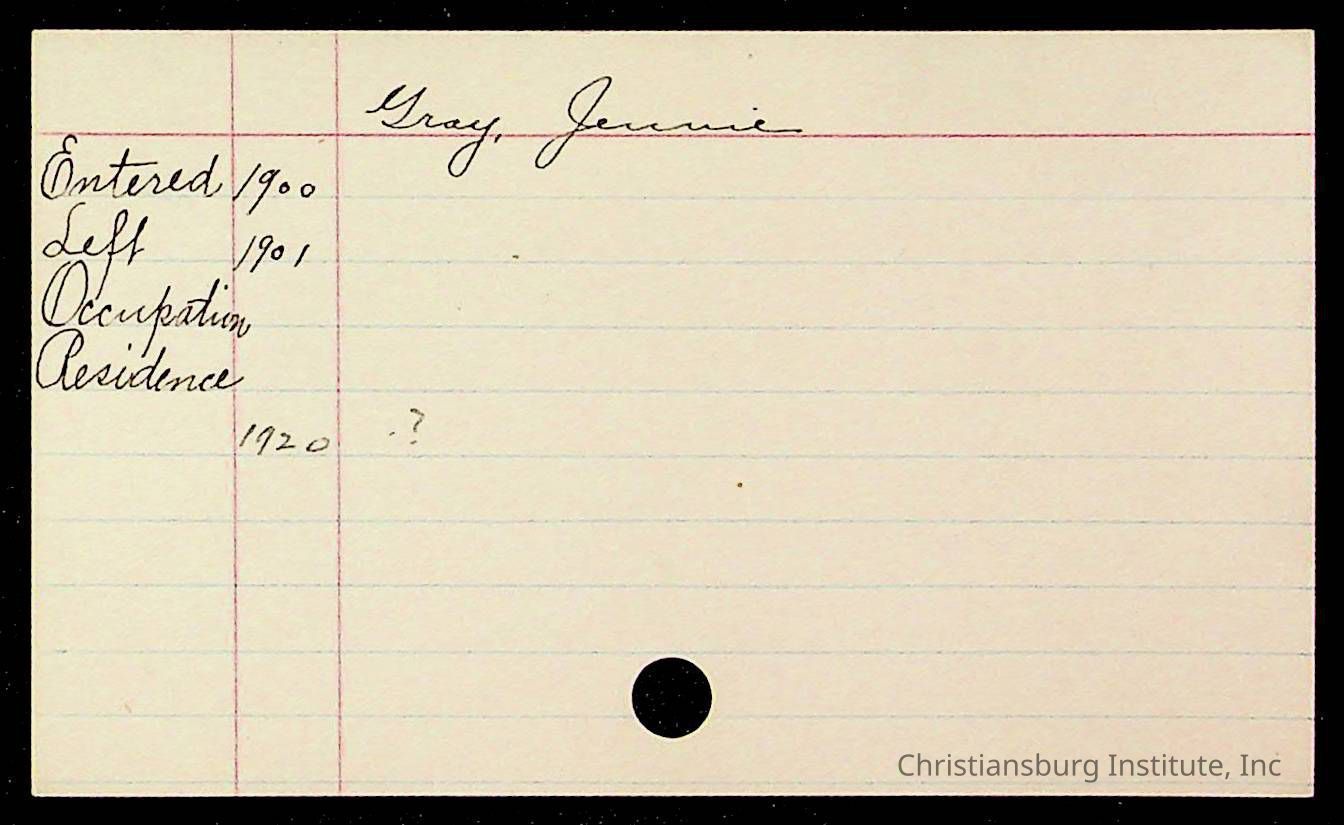 Gray, Jennie
Entered 1900
Left 1901
Occupation
Residence
1920 ?
Christiansburg Institute, Inc